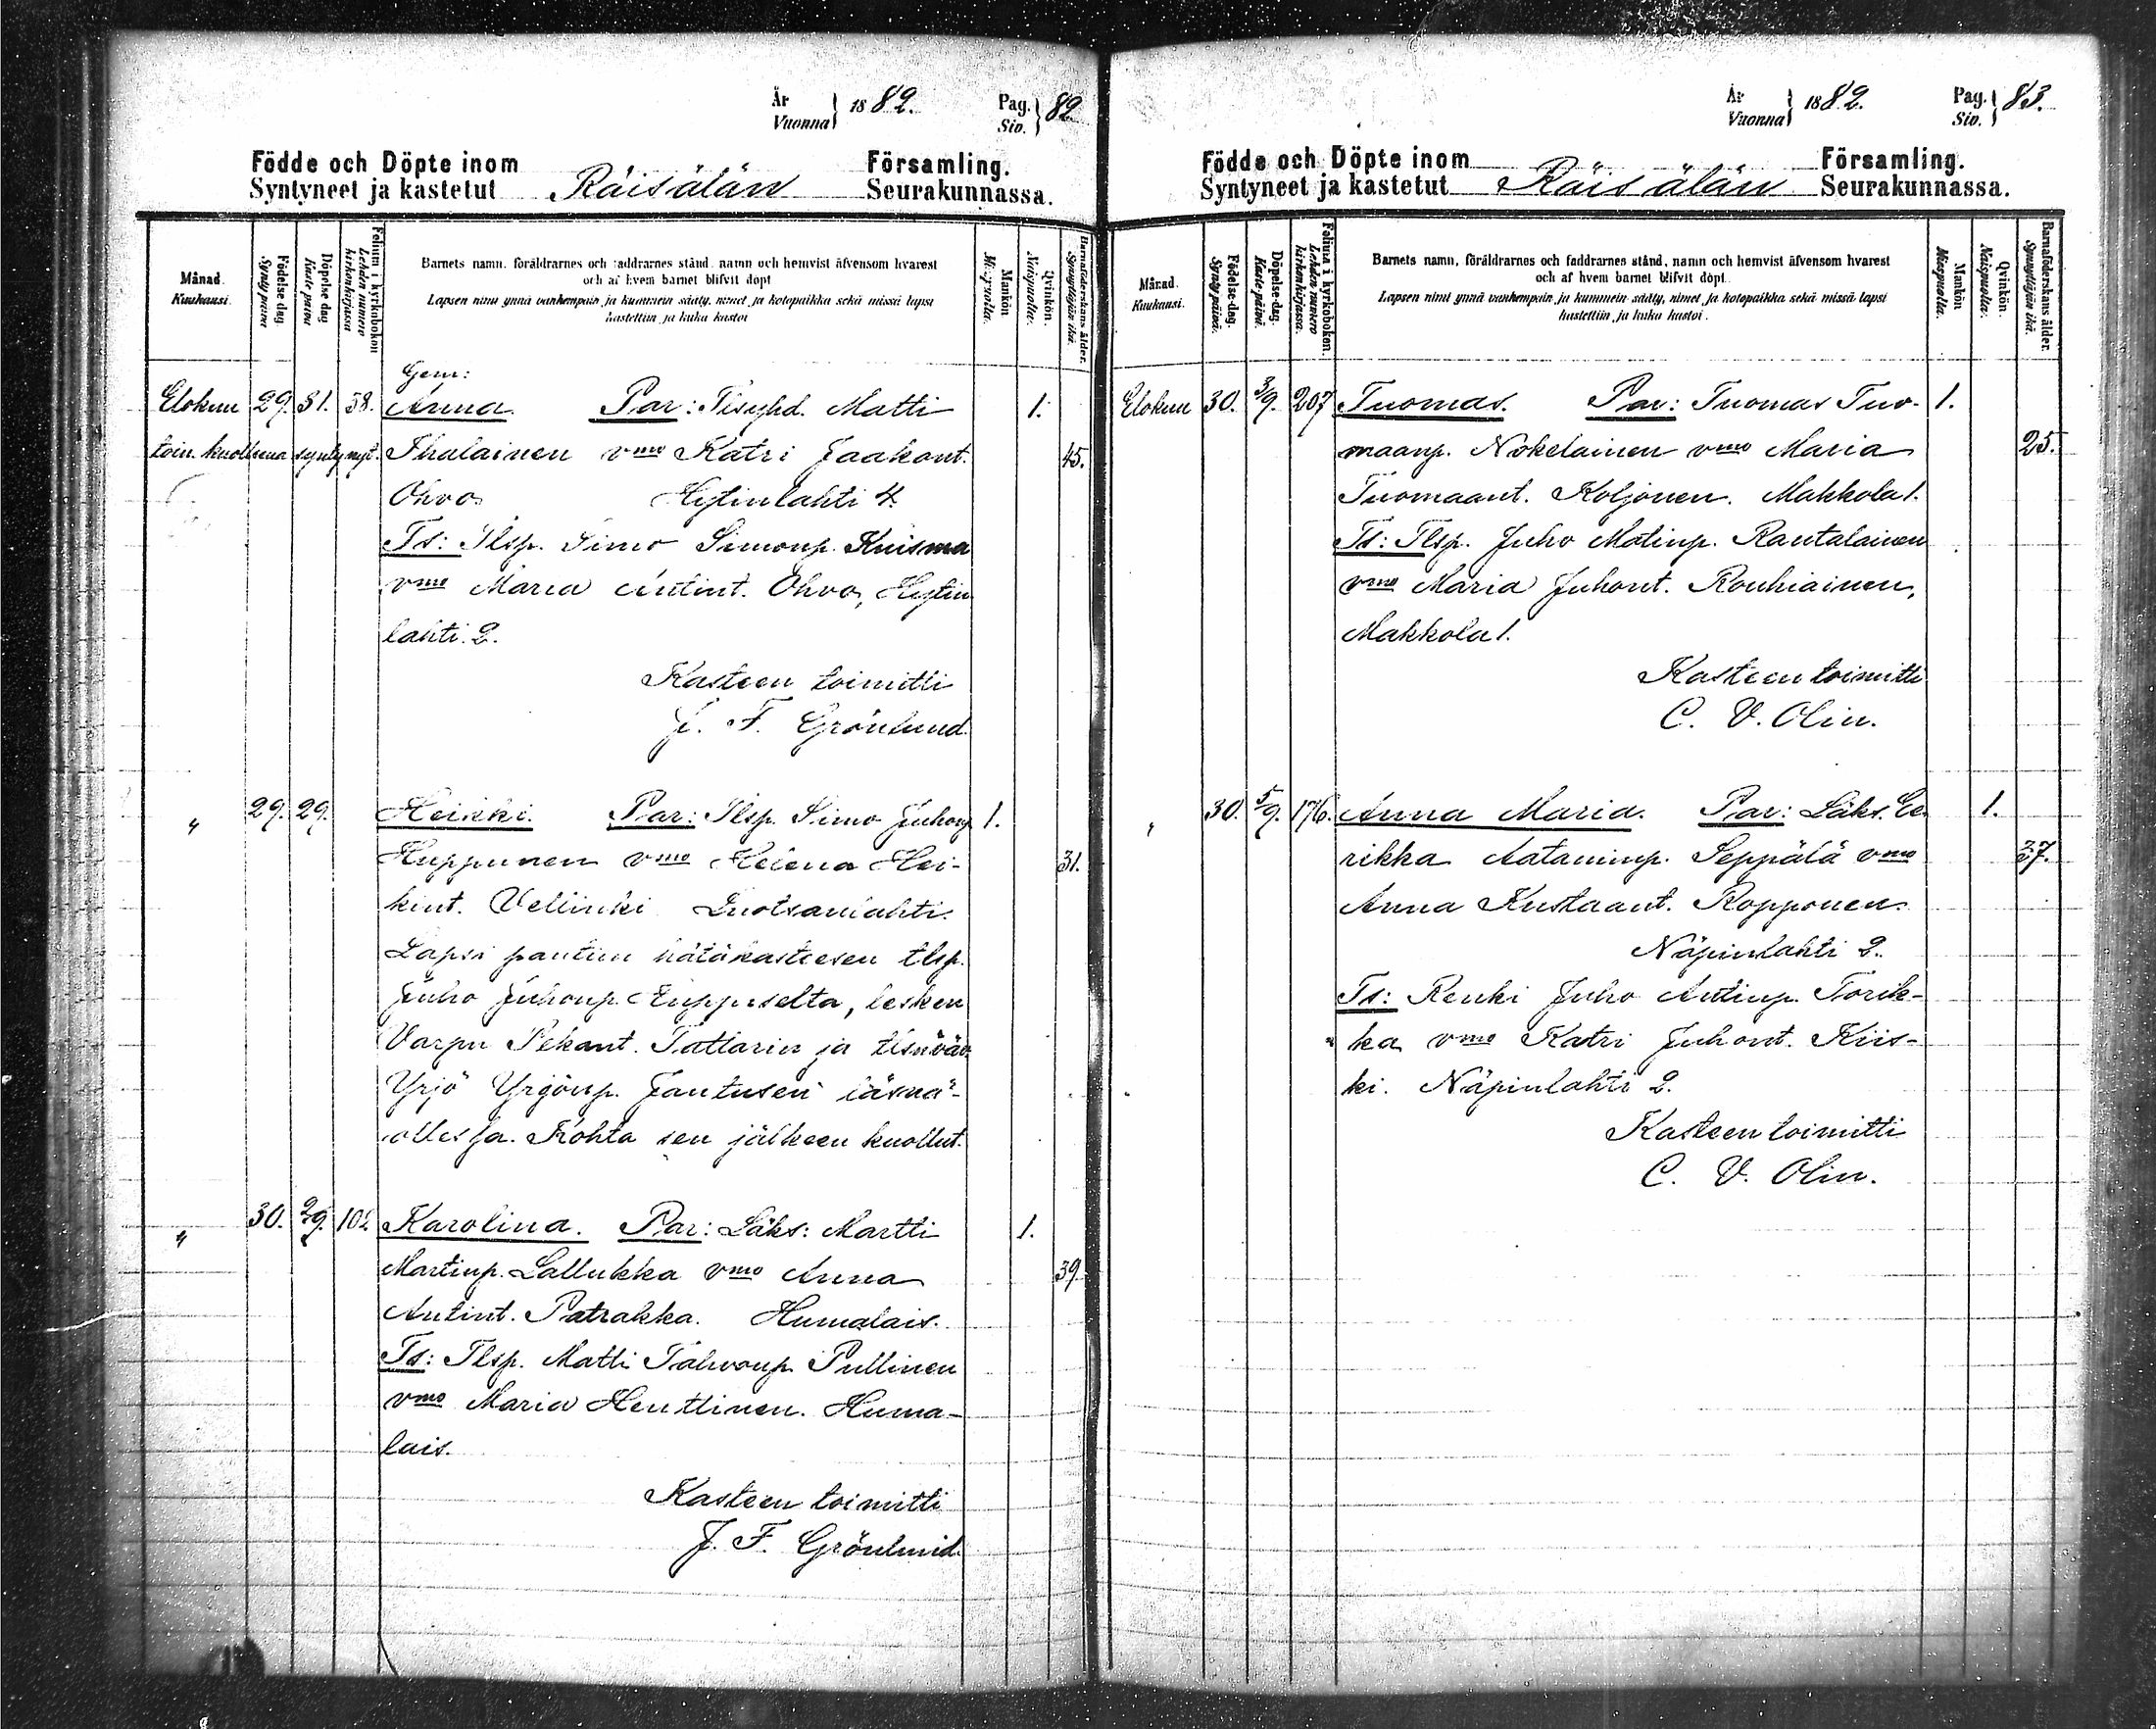 År
Vuonna } 1882.
Pag.
Siv. } 82
Födde och Döpte inom Församling.
Syntyneet ja kastetut Räisälän Seurakunnassa.
Månad.
Kuukausi.
Födelse-dag.
Synty päivä.
Döpelse dag
Kaste päivä
Folium i kyrkoboken
Lehden numero
kirkonkirjassa
Barnets namn, föräldrarnes och faddrarnes stånd, namn och hemvist äfvensom hvarest
och af hvem barnet blifvit döpt
Lapsen nimi ynnä vanhempain ja kummein sääty, nimet ja kotopaikka sekä missä lapsi
kastettiin ja kuka kastoi
Mankön
Miespuolia.
Qvinkön.
Naispuolia.
Barnaföderskans ålder.
Synnyttäjän ikä.
Gem:
Elokuu 29. 31. 58. Anna. Par: Itsyhd. Matti 1.
toin. kuolleena syntynyt. Ihalainen vmo Katri Jaakont. 45.
Ohvo Hytinlahti 4.
Ts: Tlsp. Simo Simonp. Kuisma
vmo Maria Antint. Ohvo, Hytin
lahti 2.
Kasteen toimitti
J. F. Grönlund.
" 29. 29. Heikki. Par: Tlsp. Simo Juhonp 1.
Huppunen vmo Helena Hei- 31.
kint. Vellinki
Lapsi pantiin hätäkasteesen tlsp.
Juho Juhonp. Huppuselta, lesken
Varpu Pekant. Tattarin ja
Yrjö Yrjönp. Jantusen läsnä-
ollessa. Kohta sen jälkeen kuollut.
" 30. 2/9. 102 Karolina. Par: Läks: Martti 1.
Martinp. Lallukka vmo Anna 39
Antint. Patrakka. Humalais.
Ts: Tlsp. Matti Tahvonp. Pullinen
vmo Maria Henttinen. Huma-
lais.
Kasteen toimitti
J. F. Grönlund.
År
Vuonna } 1882.
Pag.
Siv. } 83.
Födde och Döpte inom Församling.
Syntyneet ja kastetut Räisälän Seurakunnassa.
Månad.
Kuukausi.
Födelse-dag.
Synty päivä.
Döpelse-dag.
Kaste päivä.
Folium i kyrkoboken.
Lehden numero
kirkonkirjassa.
Barnets namn, föräldrarnes och faddrarnes stånd, namn och hemvist äfvensom hvarest
och af hvem barnet blifvit döpt.
Lapsen nimi ynnä vanhempain ja kummein sääty, nimet ja kotopaikka sekä missä lapsi
kastettiin, ja kuka kastoi.
Mankön
Miespuolia.
Qvinkön.
Naispuolia.
Barnaföderskans ålder.
Synnyttäjän ikä.
Elokuu 30. 3/9. 207 Tuomas. Par: Tuomas Tuo- 1.
maanp. Nokelainen vmo Maria 25.
Tuomaant. Koljonen. Makkola 1.
Ts: Tlsp. Juho Matinp. Rantalainen
vmo Maria Juhont. Rouhiainen,
Makkola 1.
Kasteen toimitti
C. V. Olin.
" 30. 5/9. 176. Anna Maria. Par: Läks. Ee- 1.
rikka Aataminp. Seppälä vmo 27.
Anna Kustaant. Ropponen.
Näpinlahti 2.
Ts: Renki Juho Antinp. Torik-
ka vmo Katri Juhont. Kiis-
ki. Näpinlahti 2.
Kasteen toimitti
C. V. Olin.